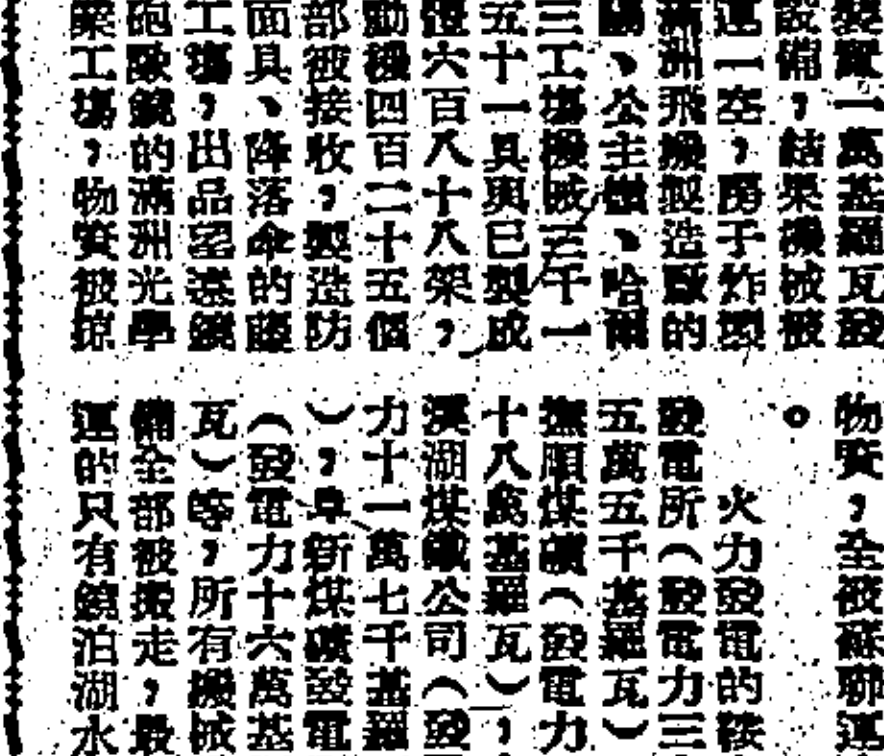 裝置一萬基羅瓦發
設備，結果機械被
運一空，子炸
滿洲飛機製造廠的
、公主嶺、哈爾
三工場機械三千一
五十一具與已製成
六百八十八架，
動機四百二十五個
部被接收，製造防
面具、降落傘的藤
工場，出品望遠鏡
砲鏡的滿洲光學
業工場，物資被掠
物資，全被蘇聯運
。
火力發電的鞍
發電所（發電力三
五萬五千基羅瓦）
撫順煤礦（發電力
十八萬基羅瓦），
溪湖煤鐵公司（發
力十一萬七千基羅
），阜新煤礦發電
（發電力十六萬基
瓦）等，所有機械
備全部被搬走，最
運的只有鏡泊湖水